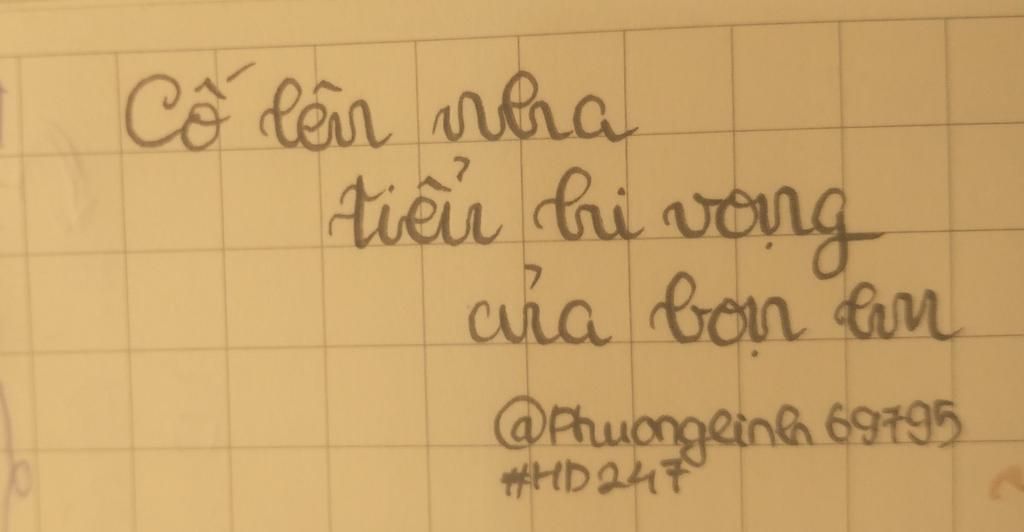 Cố lên nha
tiểu hi vọng
của bọn em
@Phuonglinh69795
#HD247